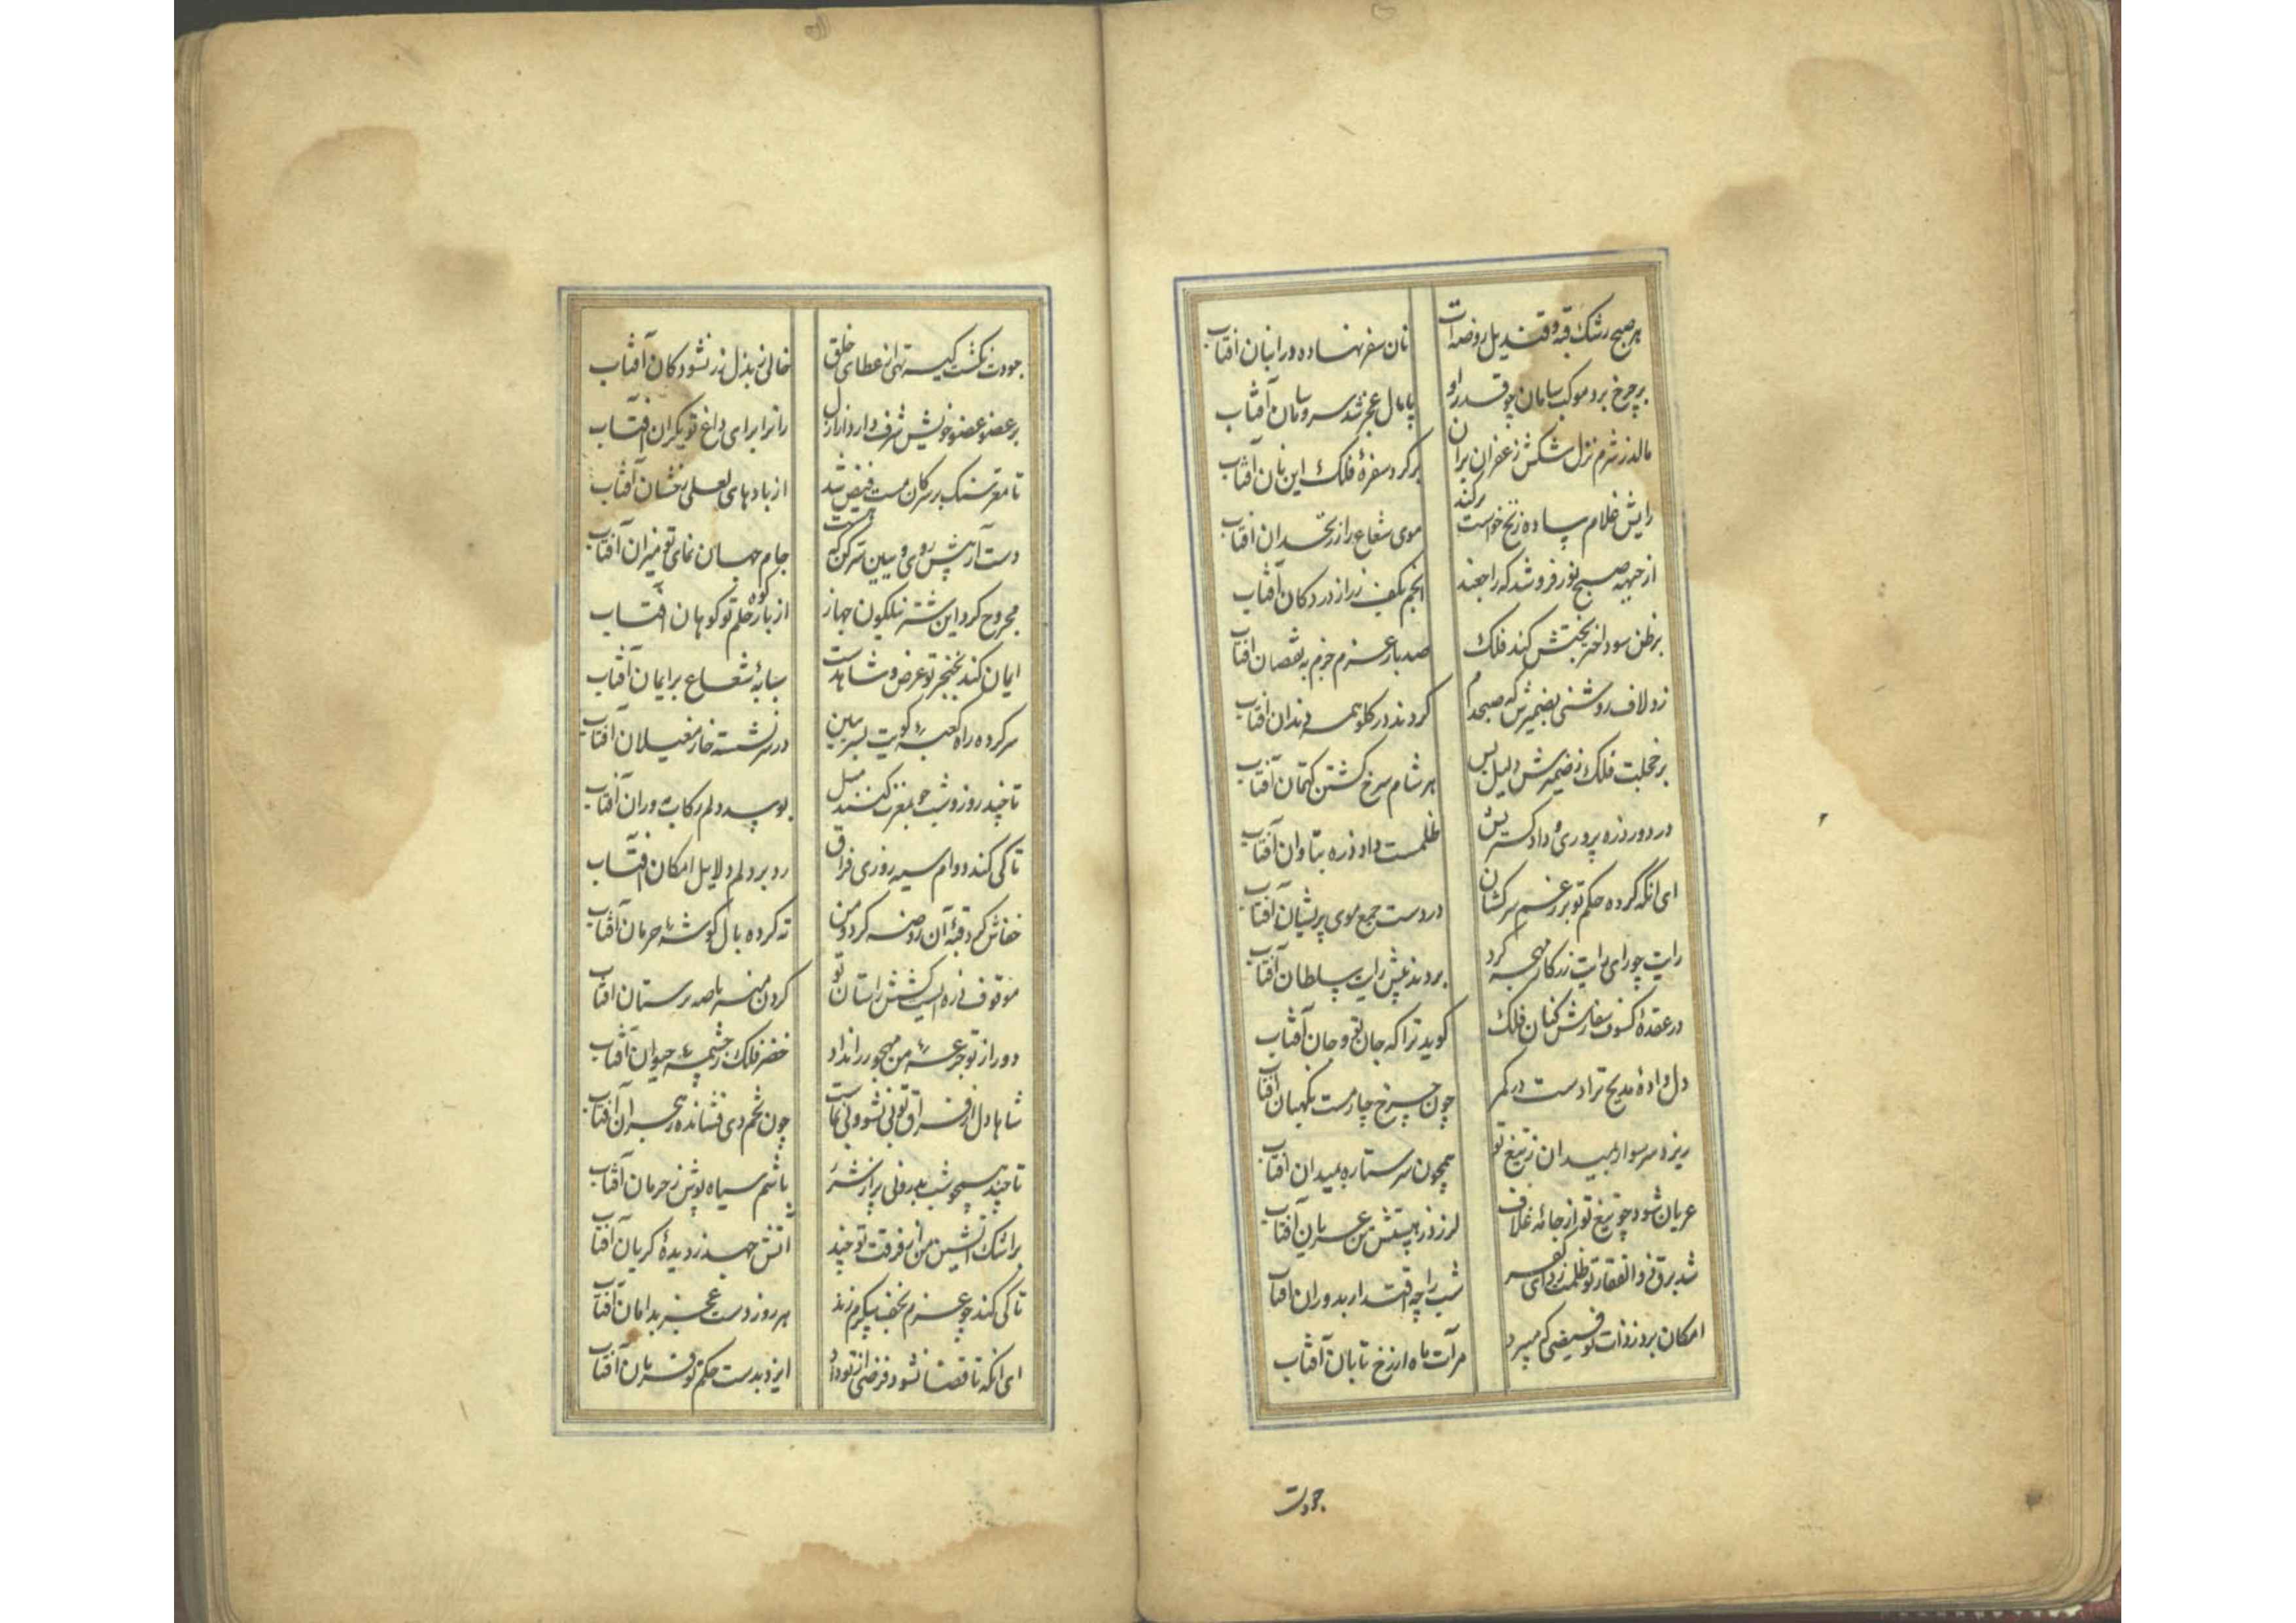 هر صبح رشک قبه و قندیل روضه‌ات نان سفر نهاده در انبان آفتاب
بر چرخ برد موکب سامان چو قدر او پامال عجز شد سر و سامان آفتاب
مالد ز شرم نزل شکش زعفران بران بر گرد سفرهٔ فلک این نان آفتاب
رایش غلام ساده زنخ خواست برکند موی شعاع را ز زنخدان آفتاب
از جبهه صبح نور فروشد که را جهند انجم بکف زر از در دکان آفتاب
بر ظن سود اختر بختش کند فلک صد بار عزم جزم به نقصان آفتاب
زد لاف روشنی بضمیرش که صبحدم کردند در کلو همه دندان آفتاب
بر خجلت فلک ز ضمیرش دلیل بس هر شام سرخ گشتن کتمان آفتاب
در دور ذره پروری و دادگستریش ظلمست داد ذره بتاوان آفتاب
ای آنکه کرده حکم تو بر رغم سرکشان در دست جمع موی پریشان آفتاب
رایت چو رای رایت زرکار مهجه کرد بردند پیش رایت سلطان آفتاب
در عقدهٔ کسوف سفارش کنان فلک کوید ترا که جان تو و جان آفتاب
دل دادهٔ مدیح ترا دست در کمر چون چرخ چارمست نگهبان آفتاب
ریزد سر سوار بمیدان ز تیغ تو همچون سر ستاره بمیدان آفتاب
عریان شود چو تیغ تو از جامهٔ غلاف لرزد ز هیبتش تن عریان آفتاب
شد برق ذوالفقار تو ظلمت زدای کفر شب را چه اقتدار بدوران آفتاب
امکان برد ز ذات تو فیضی که میبرد مرآت ماه از رخ تابان آفتاب
جودت
جودت نگشت کیسه تهی از عطای خلق خالی ز بذل زر نشود کان آفتاب
بر عضو عضو خویش شرف دارد از ازل را ترا برای داغ تو یکران آفتاب
تا مغز سنگ بر سر کان مست فیض شد از بادهای لعلی رخشان آفتاب
دست آر پیش روی و ببین سر کن که هست جام جهان نمای تو میزان آفتاب
مجروح کرد این شتر نیلگون جهاز از بار کوه حلم تو کوهان آفتاب
ایمان کند بخنجر تو عرض و شاهدست سبابهٔ شعاع بر ایمان آفتاب
سر کرده راه کعبهٔ کویت بسر ببین در سر نشسته خار مغیلان آفتاب
تا چند روز و شب چو بمغرب کنند میل بوسد دلم رکاب دوران آفتاب
تا کی کند دوام سیه روزی فراق رد بر دلم دلایل امکان آفتاب
خفاش کرد قبهٔ آن روضه کرد و من ته کرده بال گوشهٔ حرمان آفتاب
موقوف ذره ایست کشش ز آستان تو کردن منه بناصه برستان آفتاب
دور از تو جرعهٔ من مهجور را نداد خضر فلک ز چشمهٔ حیوان آفتاب
شاها دل از فراق تو بی نشو و بی نماست چون تخم دی فشانده ز هجران آفتاب
تا چند همچو شب بدرونی پر از شرر باشم سیاه پوش ز حرمان آفتاب
بر اشک آتشین من از فرقت تو چند آتش جهد ز دیدهٔ گریان آفتاب
تا کی کند چو عزم نجف پیکرم زند هر روز دست عجز بدامان آفتاب
ای آنکه تا قضا نشود فرضی از تو داد ایزد بدست حکم تو فرمان آفتاب